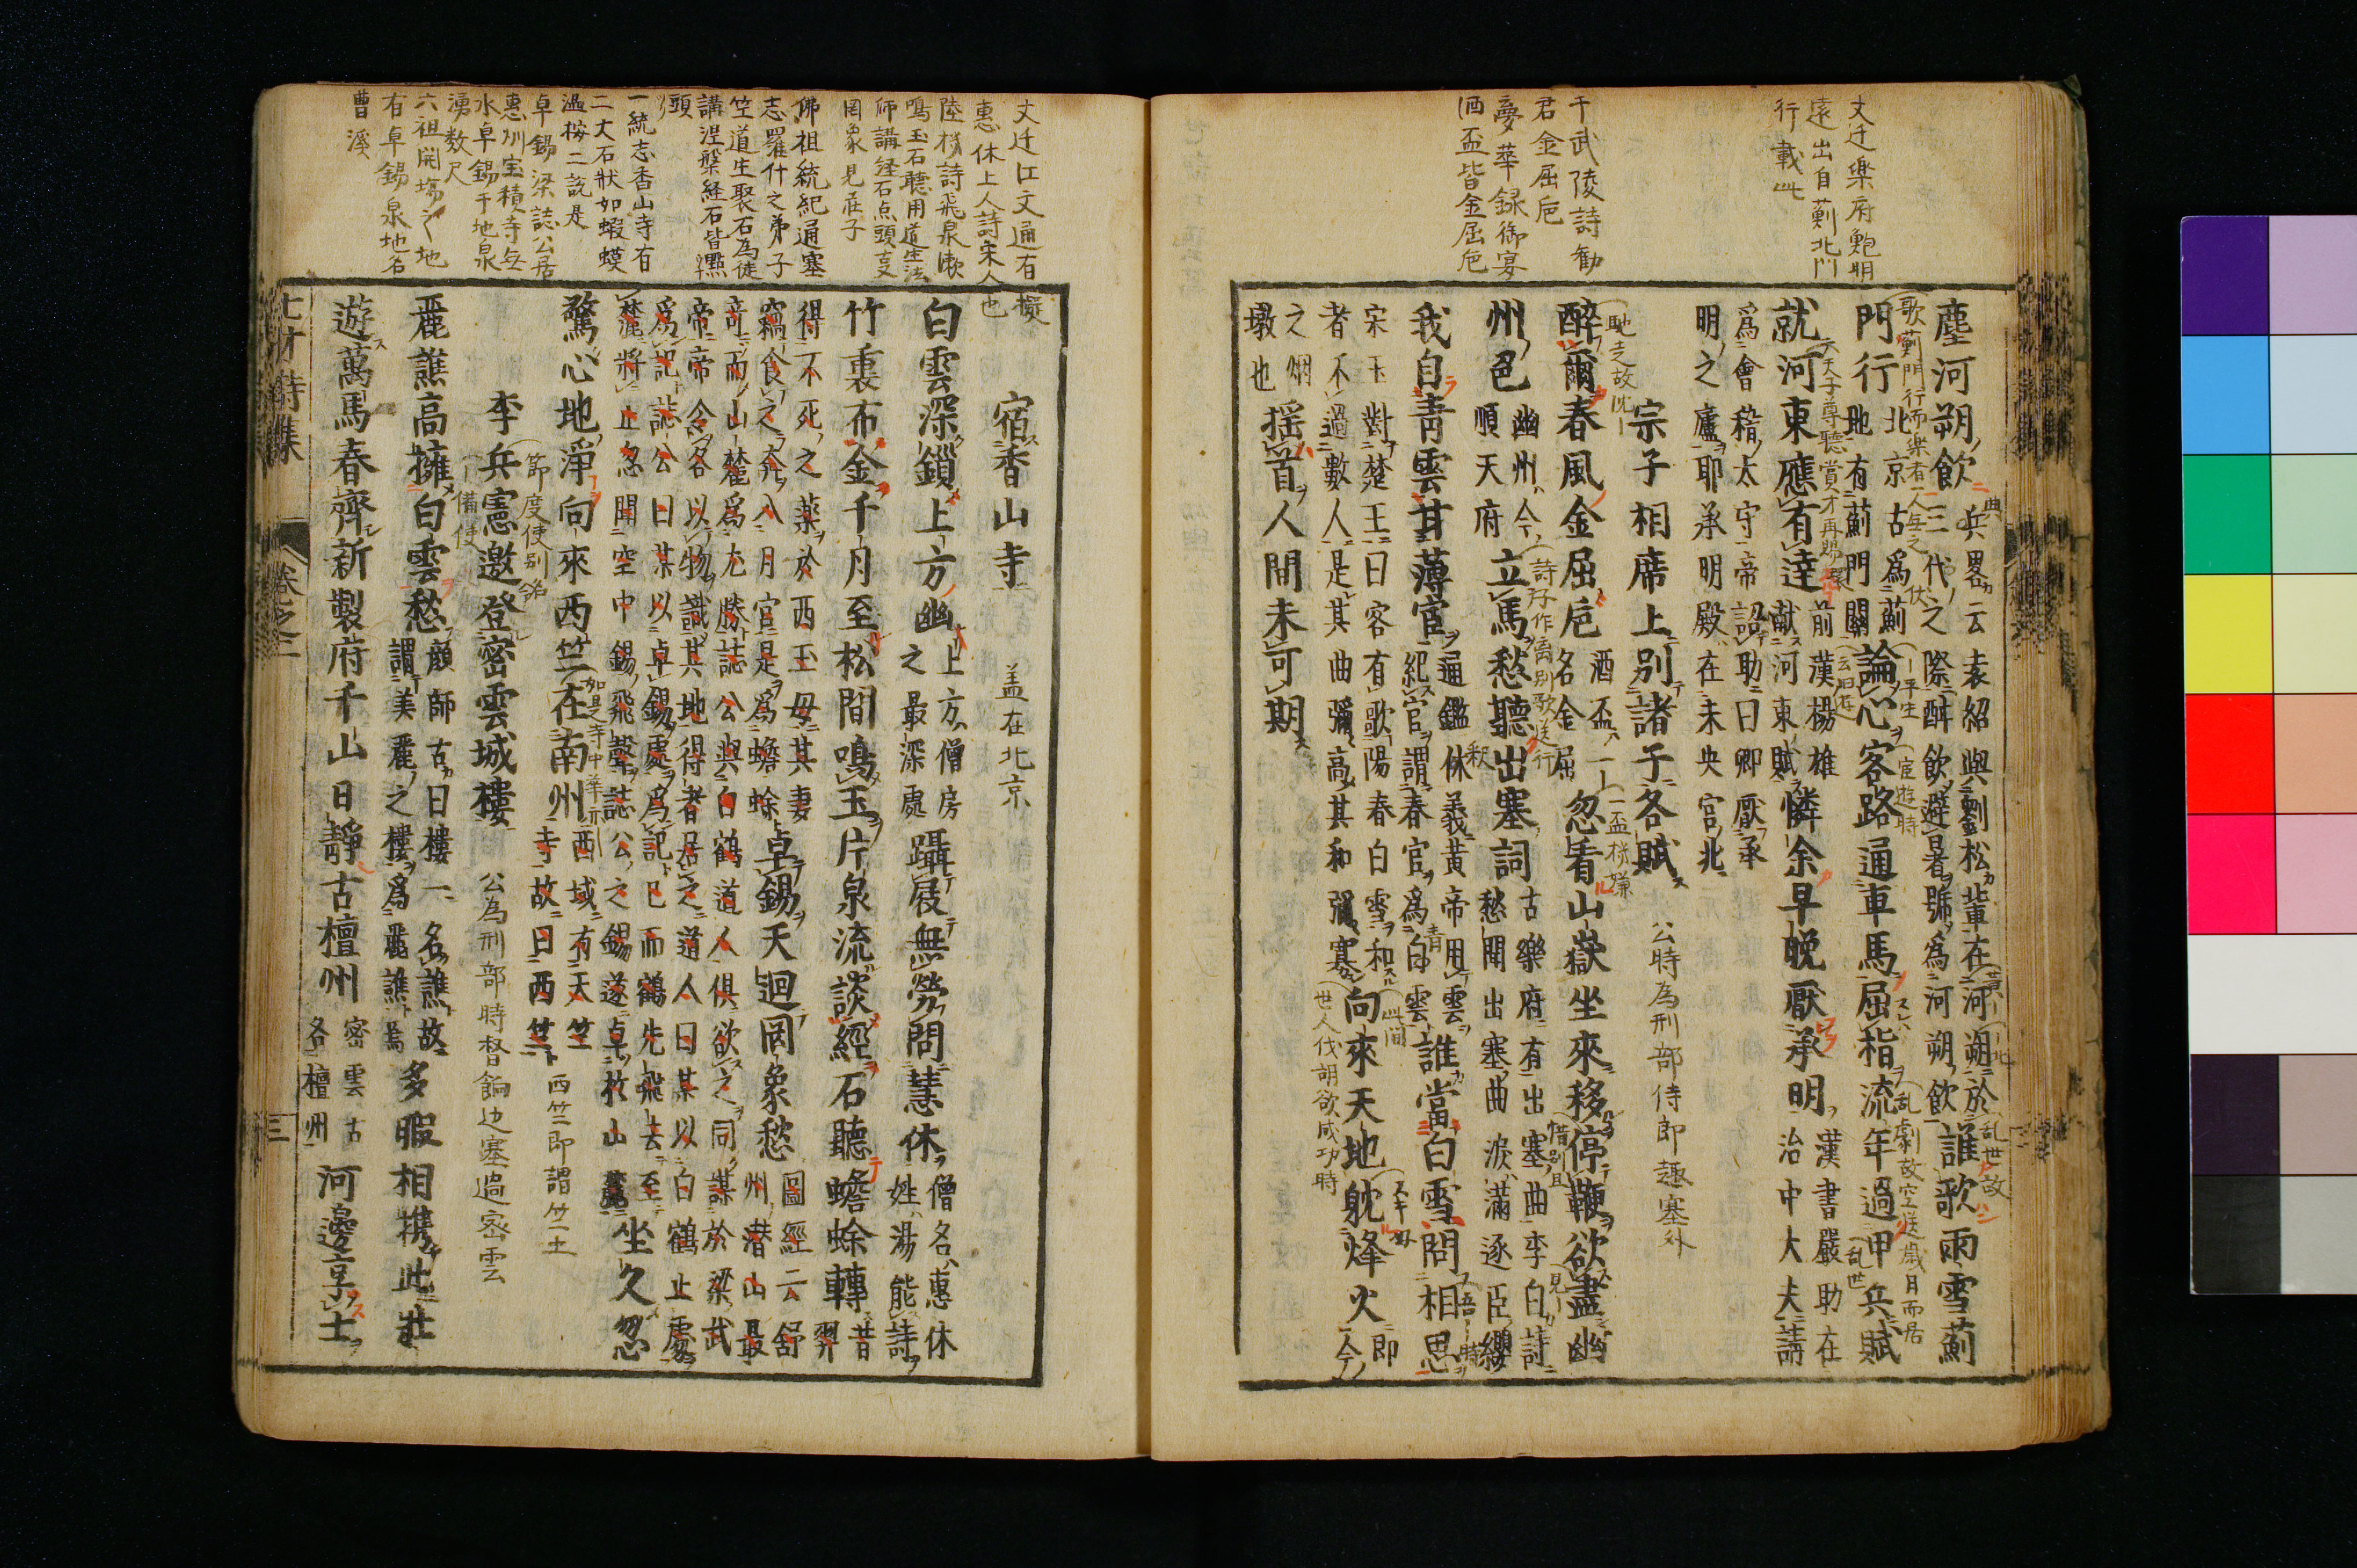 文迁樂府鮑明
遠出自薊北門
行載此
于武陵詩勸
君金屈巵
夢華録御宴
酒盃皆金屈巵
塵河朔飲
典畧云袁紹與劉松輩在河朔於
三代之際酣飲避暑號爲河朔飲
誰歌雨雪薊
門行
北京古爲薊
地有薊門關
論心客路通車馬屈指流年過甲兵賦
就河東應有達
前漢楊雄
獻河東賦
憐余早晩厭承明
漢書嚴助在
治中大夫請
爲會稽太守帝詔助曰卿厭承
明之廬耶承明殿在未央宮北
宗子相席上別諸子各賦
公時為刑部侍郎趣塞外
醉爾春風金屈巵
酒盃一
名金屈
忽看山嶽坐來移停鞭欲盡幽
州色
幽州今
順天府
立馬愁聽出塞詞
古樂府有出塞曲李白詩
愁聞出塞曲淚滿逐臣纓
我自青雲甘薄宦
通鑑休義黄帝用雲
紀官謂春官爲青雲
誰當白雪問相思
宋玉對楚王曰客有歌陽春白雪和
者不過數人是其曲彌高其和彌寡
向來天地躭烽火
即今
之烟
墩也
揺首人間未可期
文迁江文通有擬
惠休上人詩宋人也
陸機詩飛泉漱
鳴玉石聽用道生法
師講経石点頭叓
罔象見庄子
佛祖統紀通塞
志羅什之弟子
竺道生聚石為徒
講涅槃経石皆點
頭
一統志香山寺有
二大石狀如蝦蟆
過按二説是
卓錫梁誌公居
惠州宝積寺無
水卓錫于地泉
湧数尺
六祖開塲之地
有卓錫泉地名
曹溪
宿香山寺
盖在北京
白雲深鎖上方幽
上方僧房
之最深處
躡屐無勞問慧休
僧名惠休
姓湯能詩
竹裏布金千月至松間鳴玉片泉流談經石聽蟾蜍轉
昔羿
得不死之薬於西王母其妻
竊食之奔入月官是爲蟾蜍
卓錫天迴罔象愁
圖經云舒
州潜山最
奇而山麓爲尤勝誌公與白鶴道人俱欲之同謀於梁武
帝帝令各以物識其地得者居之道人曰某以白鶴止處
爲記誌公曰某以卓錫處爲記已而鶴先飛去至
麓將止忽聞空中錫飛聲誌公之錫遂卓於山麓
坐久忽
驚心地淨向來西竺在南州
西域有天竺
寺故曰西竺
西竺即謂竺土
李兵憲邀登密雲城樓
公為刑部時督餉边塞過密雲
麗譙高擁白雲愁
顔師古曰樓一名譙故
謂美麗之樓爲麗譙焉
多暇相携此壯
遊萬馬春齊新製府千山日靜古檀州
密雲古
名檀州
河邊享士
七才詩集
卷之二
三